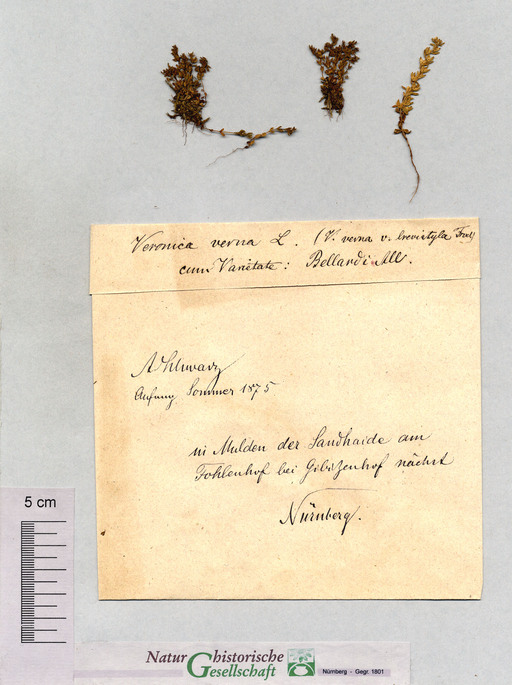 Veronica verna L. (V. verna v. brevistyla
cum Varietate: Bellardi All.
ASchwarz
Anfang Sommer 1875
in Mulden der Sandhaide am
Fohlenhof bei Gibitzenhof nächst
Nürnberg.
5 cm
Naturhistorische
Gesellschaft
Nürnberg - Gegr. 1801